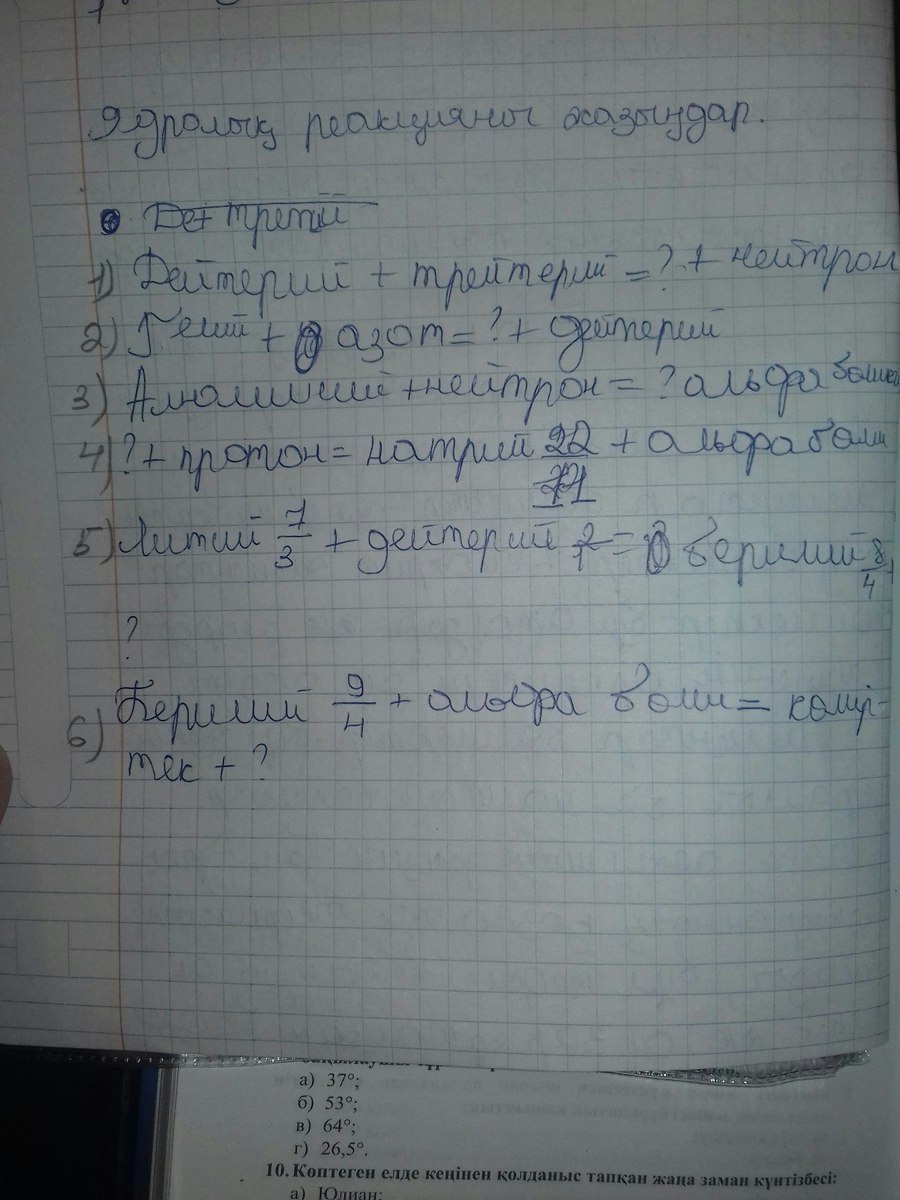 Ядролық реакцияны жазыңдар.
Дет третий
1) Дейтерий + трейтерий = ? + нейтрон
2) Гелий + азот = ? + дейтерий
3) Алюминий + нейтрон = ? альфа бөлшек
4) ? + протон = натрий 22 + альфа бөлш
11
5) Литий 7/3 + дейтерий 2/1 = бериллий 8/4
?
6) Бериллий 9/4 + альфа бөлш = көмір-
тек + ?
а) 37°;
б) 53°;
в) 64°;
г) 26,5°.
10. Көптеген елде кеңінен қолданыс тапқан жаңа заман күнтізбесі:
а) Юлиан;